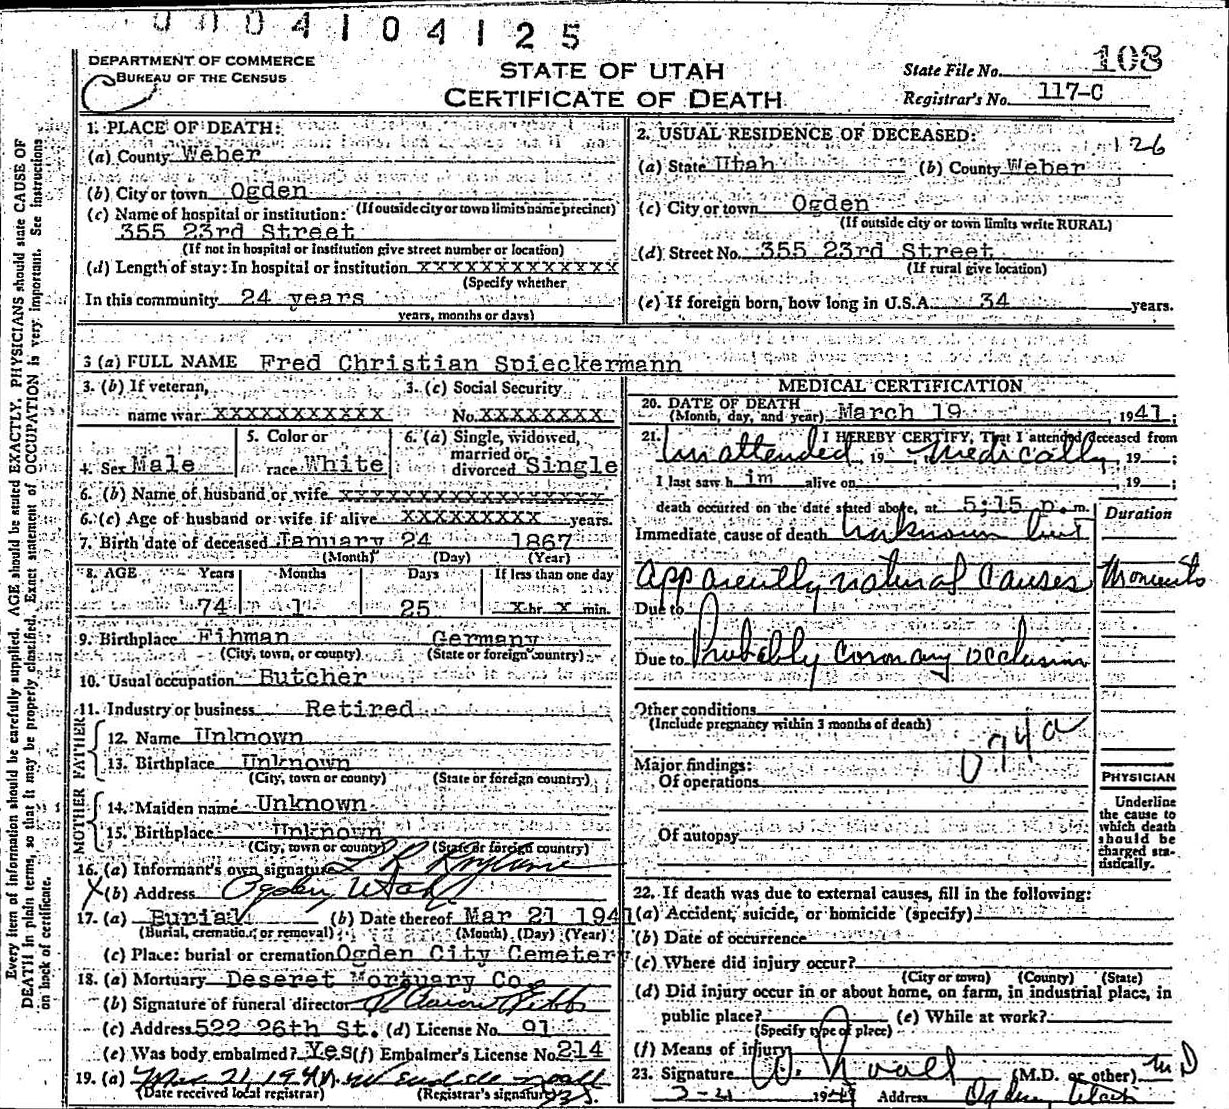 0004104125
108
DEPARTMENT OF COMMERCE
BUREAU OF THE CENSUS
STATE OF UTAH
CERTIFICATE OF DEATH
State File No.
Registrar's No. 117-C
1. PLACE OF DEATH:
(a) County Weber
(b) City or town Ogden
(If outside city or town limits name precinct)
(c) Name of hospital or institution:
355 23rd Street
(If not in hospital or institution give street number or location)
(d) Length of stay: In hospital or institution XXXXXXXXXXXXX
(Specify whether
In this community 24 years
years, months or days)
2. USUAL RESIDENCE OF DECEASED:
126
(a) State Utah (b) County Weber
(c) City or town Ogden
(If outside city or town limits write RURAL)
(d) Street No. 355 23rd Street
(If rural give location)
(e) If foreign born, how long in U.S.A. 34 years.
3 (a) FULL NAME Fred Christian Spieckermann
3. (b) If veteran, 3. (c) Social Security
name war XXXXXXXXXXX No. XXXXXXXX
4. Sex Male 5. Color or race White 6. (a) Single, widowed, married or divorced Single
6. (b) Name of husband or wife XXXXXXXXXXXXXXXXXXX
6. (c) Age of husband or wife if alive XXXXXXXXX years.
7. Birth date of deceased January 24 1867
(Month) (Day) (Year)
8. AGE Years Months Days If less than one day
74 1 25 X hr. X min.
9. Birthplace Fihman Germany
(City, town, or county) (State or foreign country)
10. Usual occupation Butcher
11. Industry or business Retired
FATHER
12. Name Unknown
13. Birthplace Unknown
(City, town or county) (State or foreign country)
MOTHER
14. Maiden name Unknown
15. Birthplace Unknown
(City, town or county) (State or foreign country)
16. (a) Informant's own signature
X (b) Address Ogden Utah
17. (a) Burial (b) Date thereof Mar 21 1941
(Burial, cremation, or removal) (Month) (Day) (Year)
(c) Place: burial or cremation Ogden City Cemetery
18. (a) Mortuary Deseret Mortuary Co.
(b) Signature of funeral director
(c) Address 522 26th St. (d) License No. 91
(e) Was body embalmed? Yes (f) Embalmer's License No. 214
19. (a) Mar 21, 1941
(Date received local registrar) (Registrar's signature)
MEDICAL CERTIFICATION
20. DATE OF DEATH
(Month, day, and year) March 19, 1941;
21. I HEREBY CERTIFY, That I attended deceased from
Unattended 19 medically, 19 ;
I last saw h im alive on , 19 ;
death occurred on the date stated above, at 5:15 p.m.
Duration
Immediate cause of death Unknown but
apparently natural causes Moments
Due to
Due to Probably coronary occlusion
Other conditions
(Include pregnancy within 3 months of death)
094a
Major findings:
Of operations
Of autopsy
PHYSICIAN
Underline
the cause to
which death
should be
charged sta-
tistically.
22. If death was due to external causes, fill in the following:
(a) Accident, suicide, or homicide (specify)
(b) Date of occurrence
(c) Where did injury occur?
(City or town) (County) (State)
(d) Did injury occur in or about home, on farm, in industrial place, in
public place? (e) While at work?
(Specify type of place)
(f) Means of injury
23. Signature (M.D. or other) MD
1941 Address Ogden, Utah
Every item of information should be carefully supplied. AGE should be stated EXACTLY. PHYSICIANS should state CAUSE OF
DEATH in plain terms, so that it may be properly classified. Exact statement of OCCUPATION is very important. See instructions
on back of certificate.